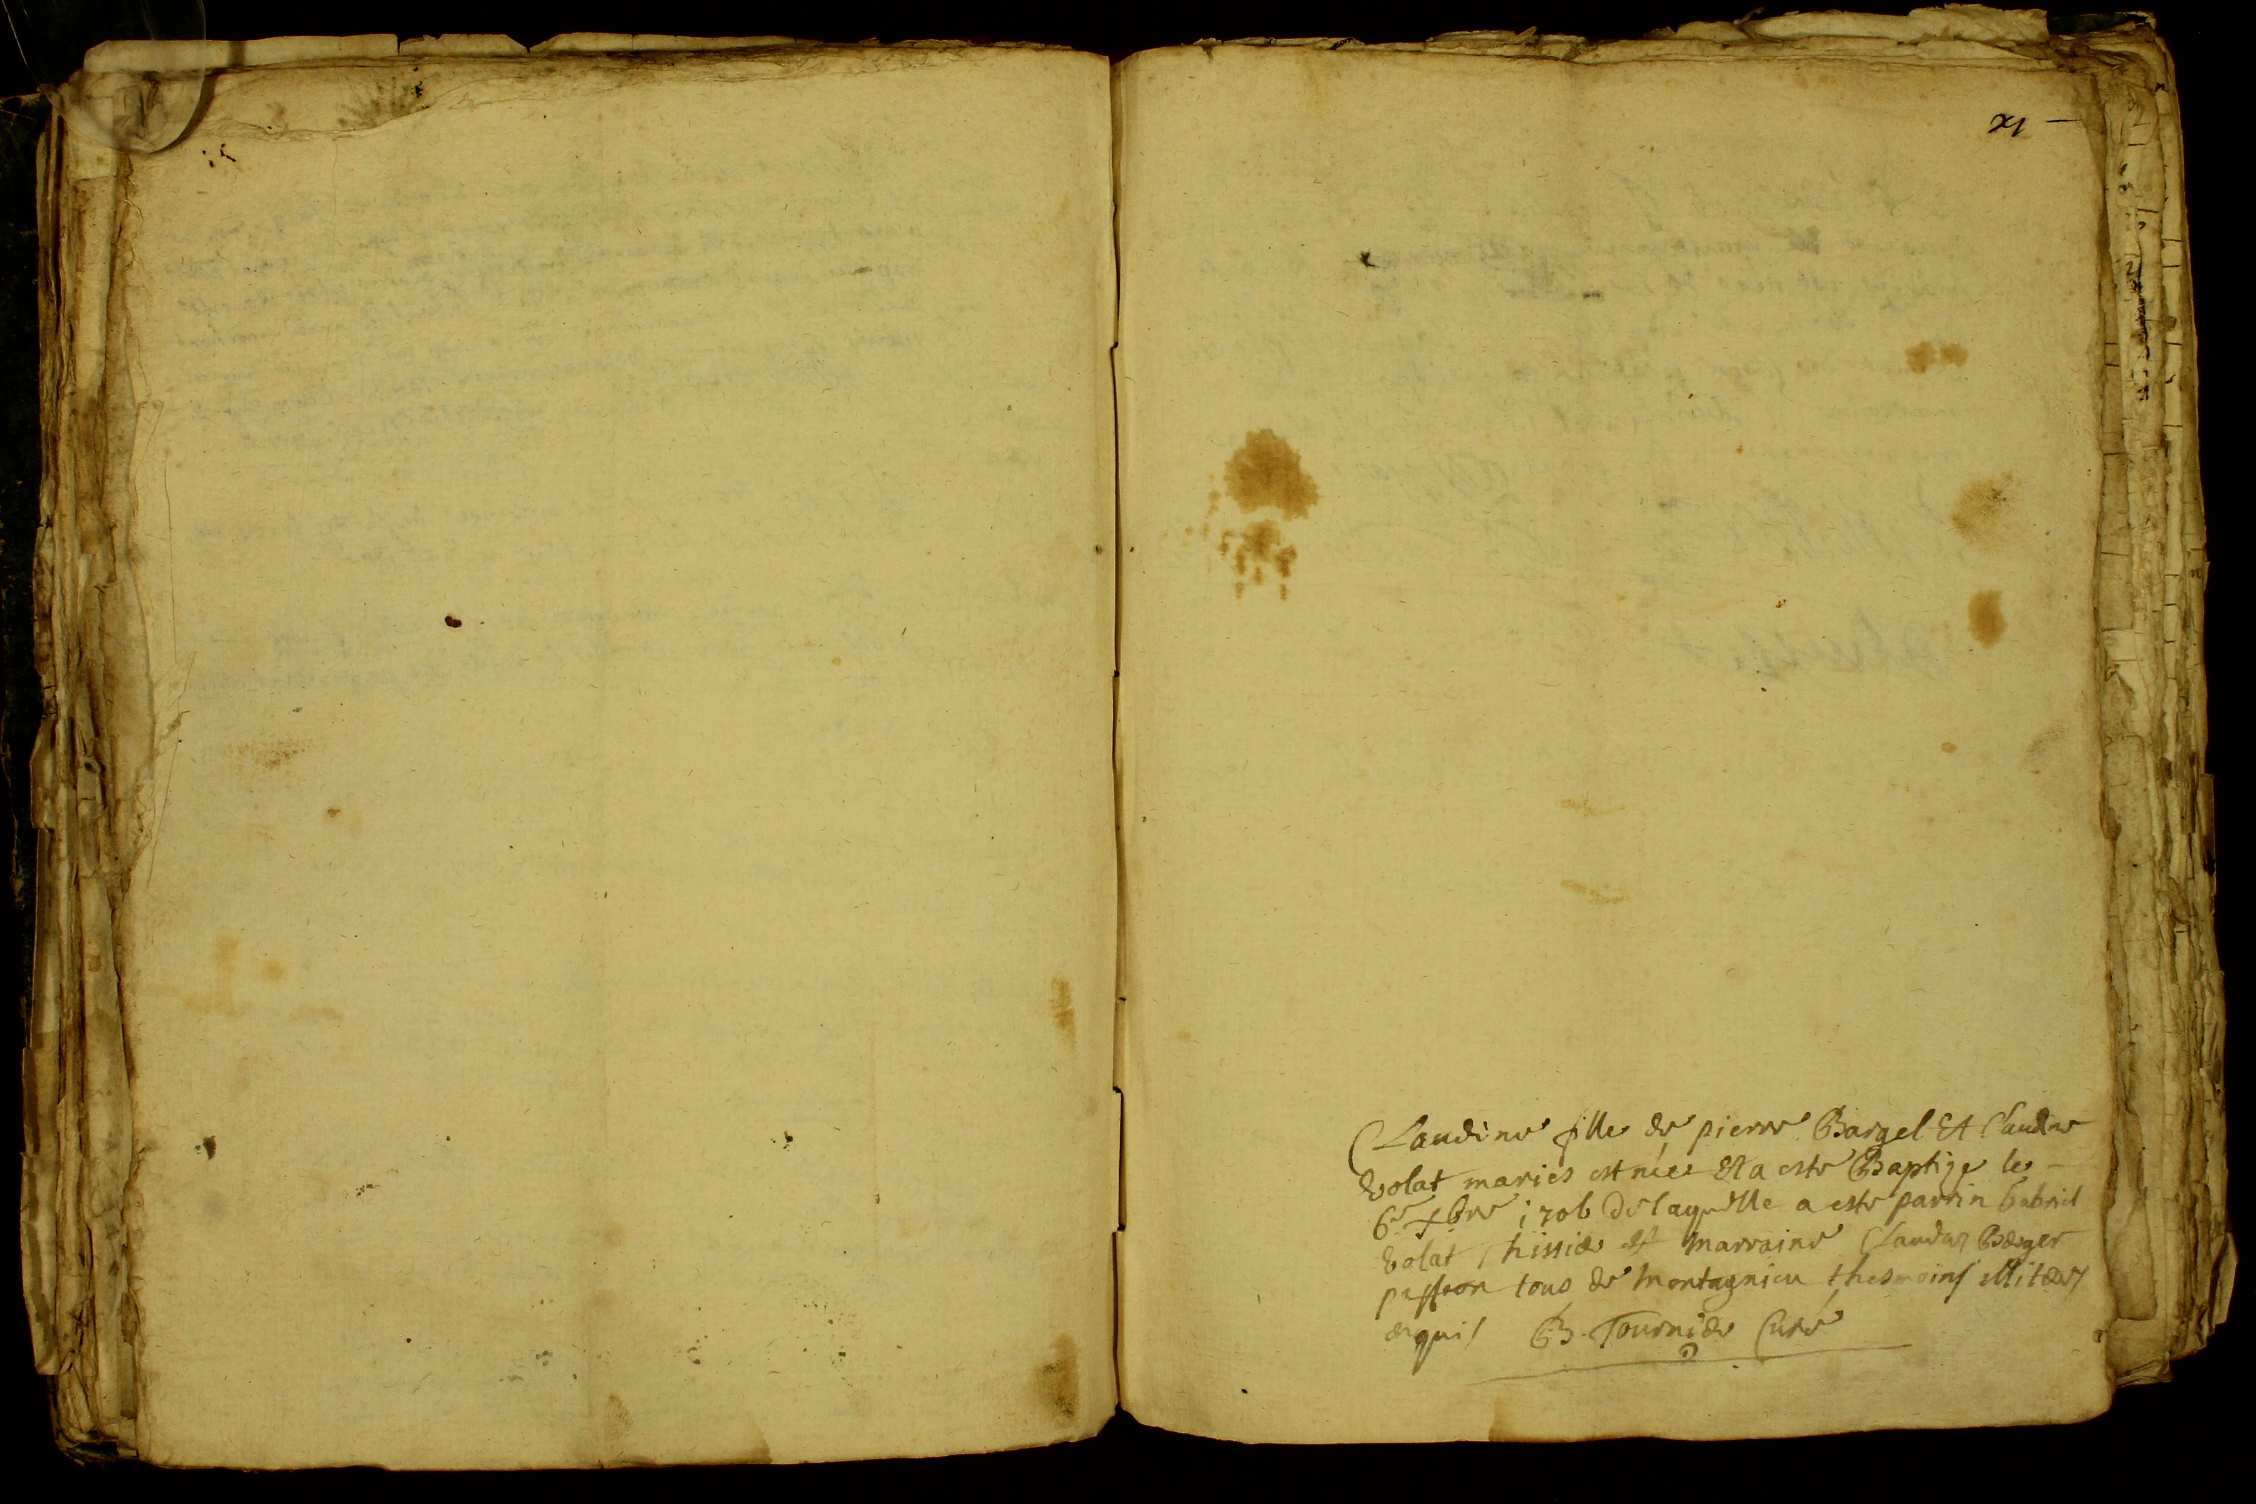 xj
Claudine fille de pierre Bargel Et Claudine
Volat mariés est née Et a este Baptize le
6e xbre 1706 de laquelle a este parrin Gabriel
Volat thissier et marraine Claudine Berger
tous de montagnieu thesmoins illiteres
enquis B. Tournier Curé